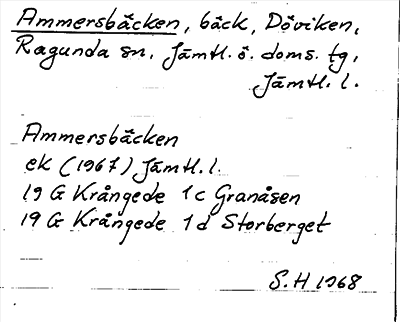 Ammersbäcken, bäck, Döviken,
Ragunda sn, Jämtl. ö. doms. tg,
Jämtl. l.
Ammersbäcken
ek (1967) Jämtl. l.
19 G Krångede 1c Granåsen
19 G Krångede 1d Storberget
S.H 1968